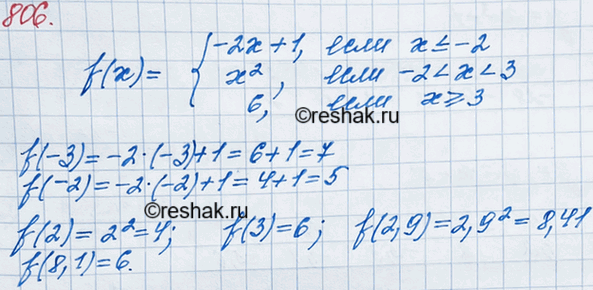 806.
f(x)= { -2x+1, если x≤-2
x², если -2<x<3
6, если x≥3
©reshak.ru
f(-3)=-2·(-3)+1=6+1=7
f(-2)=-2·(-2)+1=4+1=5
©reshak.ru
f(2)=2²=4; f(3)=6; f(2,9)=2,9²=8,41
f(8,1)=6.